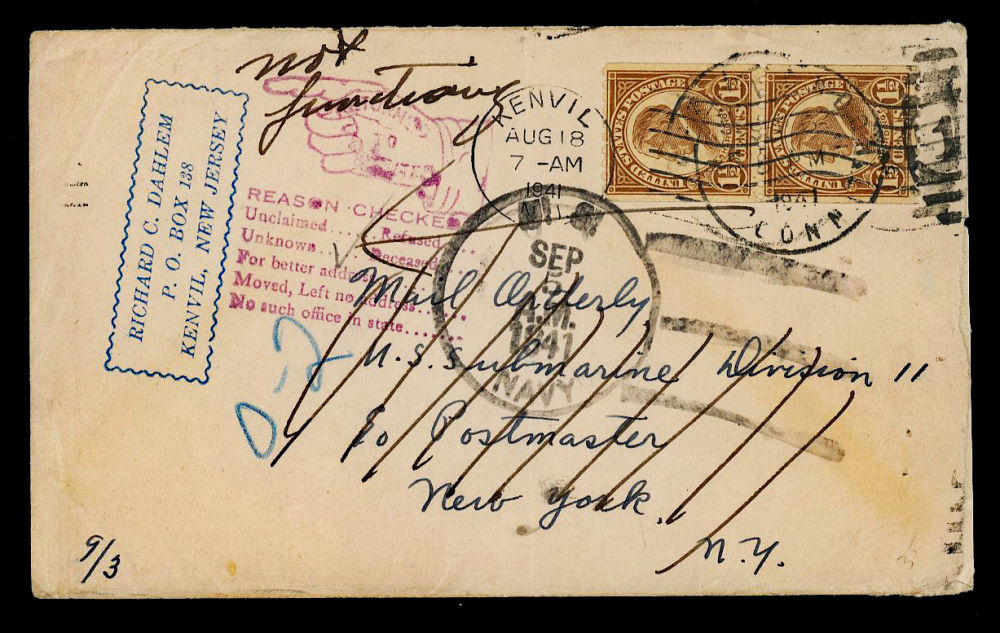 not
functioning
RICHARD C. DAHLEM
P. O. BOX 138
KENVIL, NEW JERSEY
KENVIL
AUG 18
7 -AM
1941
N.J.
UNITED STATES POSTAGE
1½
1½
UNITED STATES POSTAGE
1½
1½
M
1941
CONN
1
REASON CHECKED
Unclaimed...... Refused....
Unknown...... Deceased....
For better address......
Moved, Left no address......
No such office in state........
U. S.
SEP
5
A.M.
1941
NAVY
Mail Orderly
U.S. Submarine Division 11
c/o Postmaster
New York,
N.Y.
D-2
9/3